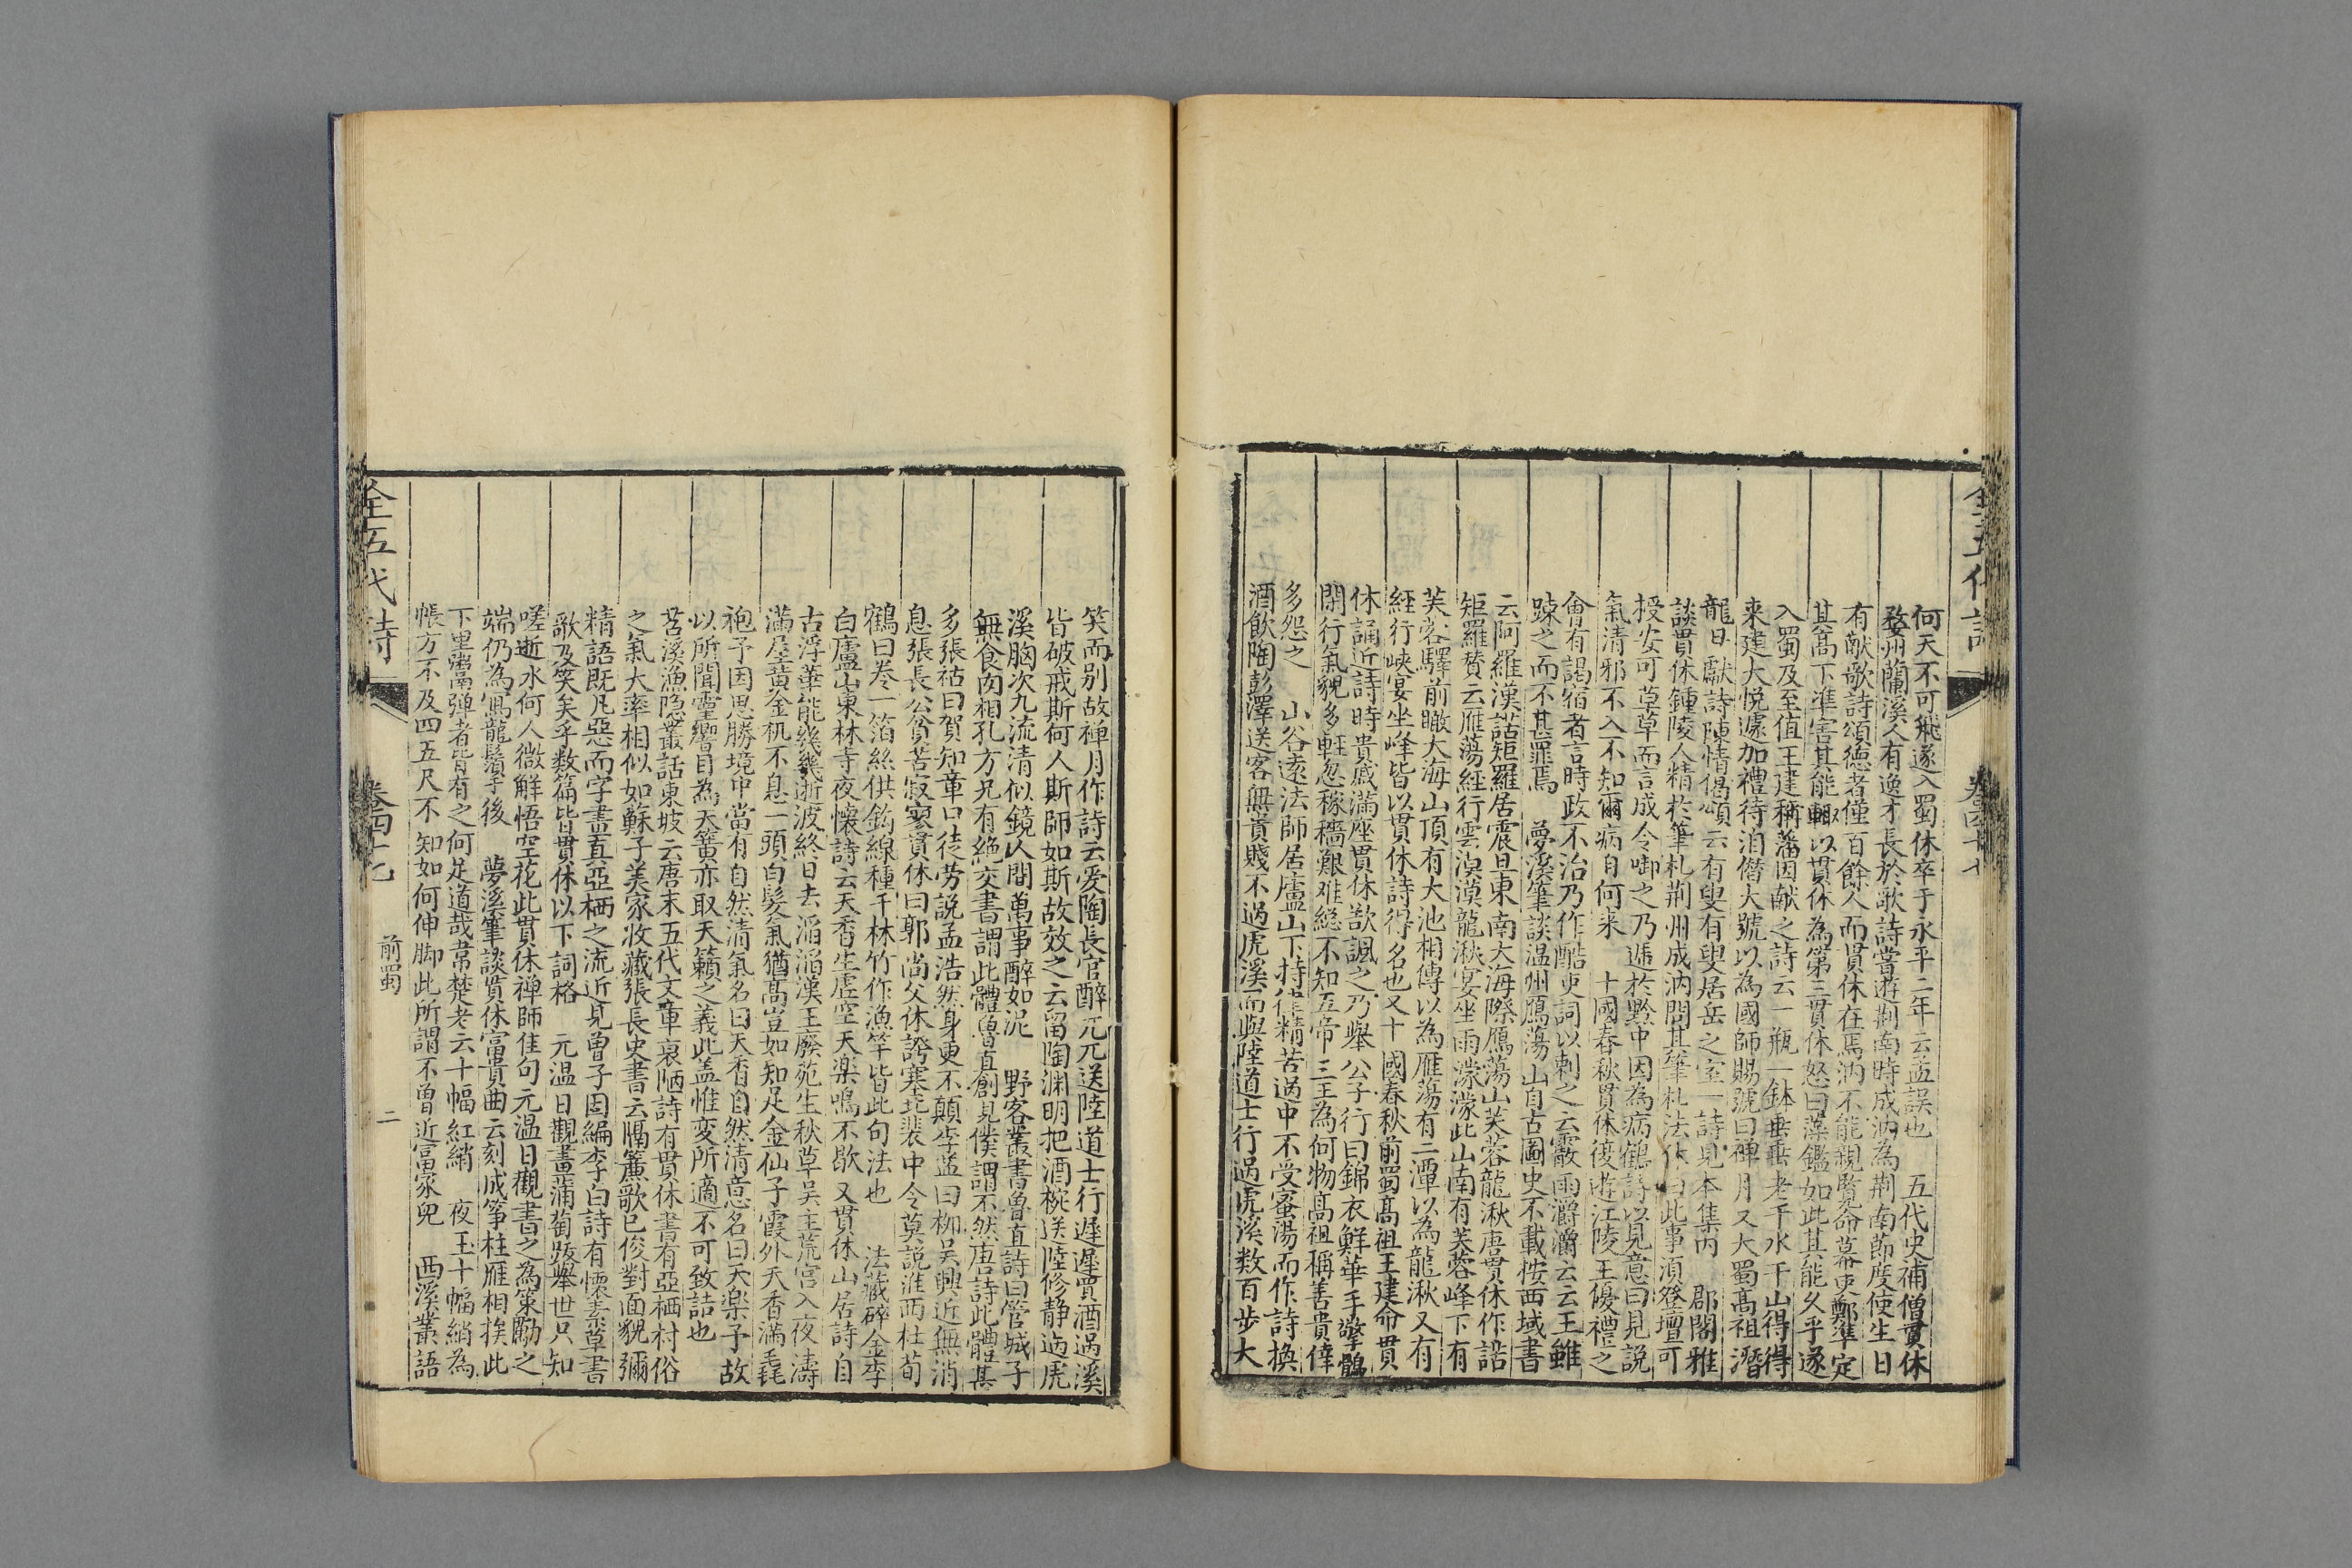 何天不可飛遂入蜀休卒于永平二年云孟誤也　五代史補僧貫休
婺州蘭溪人有逸才長於歌詩嘗遊荆南時成汭為荆南節度使生日
有献歌詩頌徳者僅百餘人而貫休在焉汭不能親覽命幕吏鄭準定
其高下準害其能輙以貫休為第三貫休怒曰藻鑑如此其能久乎遂
入蜀及至值王建稱藩因献之詩云一瓶一鉢垂垂老千水千山得得
来建大悅遽加禮待洎僭大號以為國師賜號曰禅月又大蜀髙祖潛
龍日獻詩陳情偈頌云有叟有叟居岳之室一詩見本集内　郡閣雅
談貫休鍾陵人精於筆札荆州成汭問其筆札法休曰此事湏登壇可
授安可草草而言成令啣之乃遞於黔中因為病鶴詩以見意曰見説
氣清邪不入不知爾病自何来　十國春秋貫休後遊江陵王優禮之
會有謁宿者言時政不治乃作酷吏詞以刺之云霰雨灂灂云云王雖
踈之而不甚罪焉　夢溪筆談温州鴈蕩山自古圖史不載桉西域書
云阿羅漢諾矩羅居震旦東南大海際鴈蕩山芙蓉龍湫唐貫休作諾
矩羅賛云雁蕩經行雲漠漠龍湫宴坐雨濛濛此山南有芙蓉峰下有
芙蓉驛前瞰大海山頂有大池相傳以為雁蕩有二潭以為龍湫又有
經行峽宴坐峰皆以貫休詩得名也又十國春秋前蜀髙祖王建命貫
休誦近詩時貴戚滿座貫休欲諷之乃舉公子行曰錦衣鮮華手擎鶻
閒行氣貌多輕忽稼穡艱难総不知五帝三王為何物髙祖稱善貴倖
多怨之　山谷遠法師居廬山下持律精苦過中不受蜜湯而作詩換
酒飲陶彭澤送客無貴賤不過虎溪而與陸道士行過虎溪数百步大
笑而别故禅月作詩云爱陶長官醉兀兀送陸道士行遲遲買酒過溪
皆破戒斯何人斯師如斯故效之云留陶渊明把酒椀送陸修静過虎
溪胸次九流清似鏡人間萬事醉如泥　野客叢書魯直詩曰管城子
無食肉相孔方兄有絶交書謂此體魯直創見僕謂不然唐詩此體甚
多張祜曰賀知章口徒劳説孟浩然身更不顛李益曰柳吴興近無消
息張長公貧苦寂寥貫休曰郭尚父休誇塞北裴中令莫説淮西杜荀
鶴曰卷一箔絲供釣線種千林竹作漁竿皆此句法也　法藏碎金李
白廬山東林寺夜懷詩云天香生虚空天楽鳴不歇　又貫休山居詩自
古浮華能幾幾逝波終日去滔滔漢王廢苑生秋草吴主荒宫入夜濤
滿屋黄金机不息一頭白髮氣猶髙豈如知足金仙子霞外天香滿毳
袍予因思勝境中當有自然清氣名曰天香自然清音名曰天楽予故
以所聞靈響目為天簧亦取天籟之義此盖惟变所適不可致詰也
苕溪漁隐叢話東坡云唐末五代文章衰陋詩有貫休書有亞栖村俗
之氣大率相似如蘇子美家收藏張長史書云隔簾歌已俊對面貌彌
精語既凡惡而字畫真亞栖之流近見曾子固編李白詩有懷素草書
歌及笑矣乎数篇皆貫休以下詞格　元温日觀畫蒲萄䟦舉世只知
嗟逝水何人微解悟空花此貫休禅師佳句元温日觀書之為策勵之
端仍為寫龍鬚于後　夢溪筆談貫休富貴曲云刻成筝柱雁相挨此
下里鬻弹者皆有之何足道哉韋楚老云十幅紅綃　夜玉十幅綃為
帳方不及四五尺不知如何伸脚此所謂不曾近富家兒　西溪叢語
全五代詩　卷四十七　前蜀　二